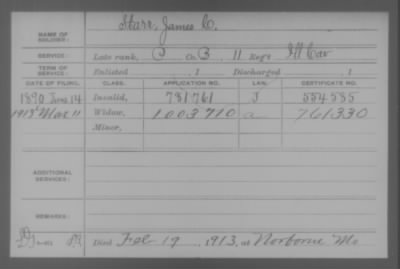 NAME OF SOLDIER: Starr, James C.
SERVICE: Late rank, P Co. B, 11 Reg't Ill Cav
TERM OF SERVICE: Enlisted , 1 Discharged , 1
DATE OF FILING. CLASS. APPLICATION NO. LAW. CERTIFICATE NO.
1890 June 14 Invalid, 781761 J 554535
1913 Mar 11 Widow, 1003710 a 761330
Minor,
ADDITIONAL SERVICES:
REMARKS:
Died Feb 19, 1913, at Norborne Mo